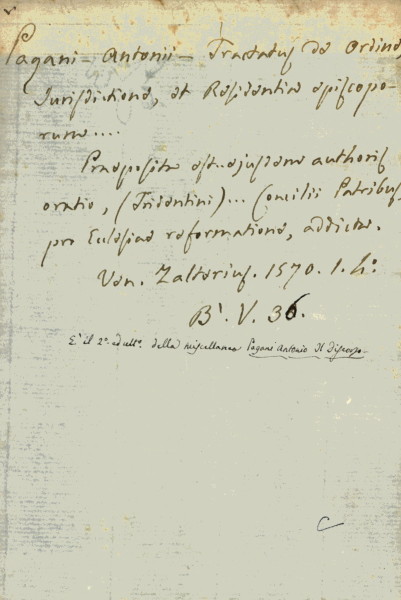 Pagani - Antonii - Tractatus de Ordine,
Jurisdictione, et Residentia episcopo-
rum....
Praeposita est ejusdem authoris
oratio, (Tridentini)... Concilii Patribus
pro Eclesiae reformatione, addicta.
Ven. Zalterius. 1570. 1. 4°
B'. V. 36.
È il 2° ed ult°. della miscellanea Pagani Antonio Il Discorso.
C